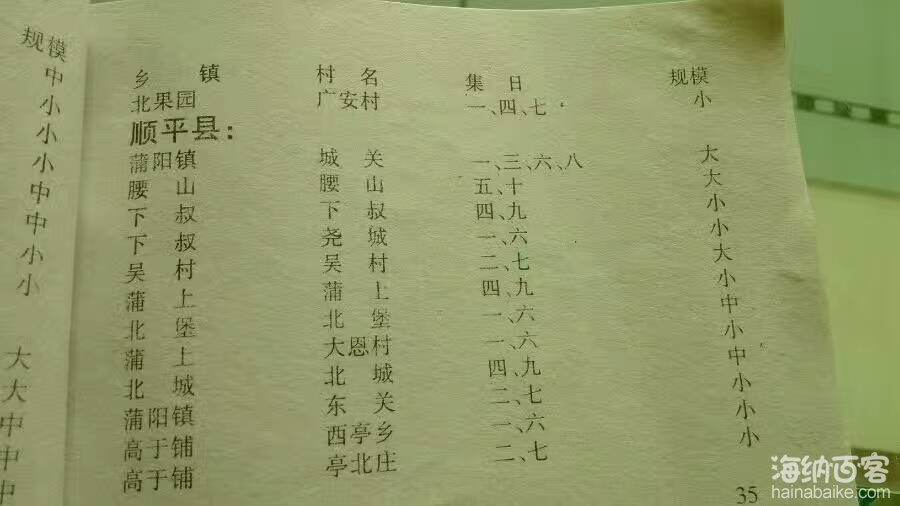 规模
中
小
小
小
中
中
小
小
大
大
中
中
中
乡 镇 村 名 集 日 规模
北果园 广安村 一、四、七 小
顺平县：
蒲阳镇 城 关 一、三、六、八 大
腰 山 腰 山 五、十 大
下 叔 下 叔 四、九 小
下 叔 尧 城 一、六 小
吴 村 吴 村 二、七 大
蒲 上 蒲 上 四、九 小
北 堡 北 堡 一、六 中
蒲 上 大恩村 一、六 小
北 城 北 城 四、九 中
蒲阳镇 东 关 二、七 小
高于铺 西亭乡 一、六 小
高于铺 亭北庄 二、七 小
35
海纳百客
hainabaike.com